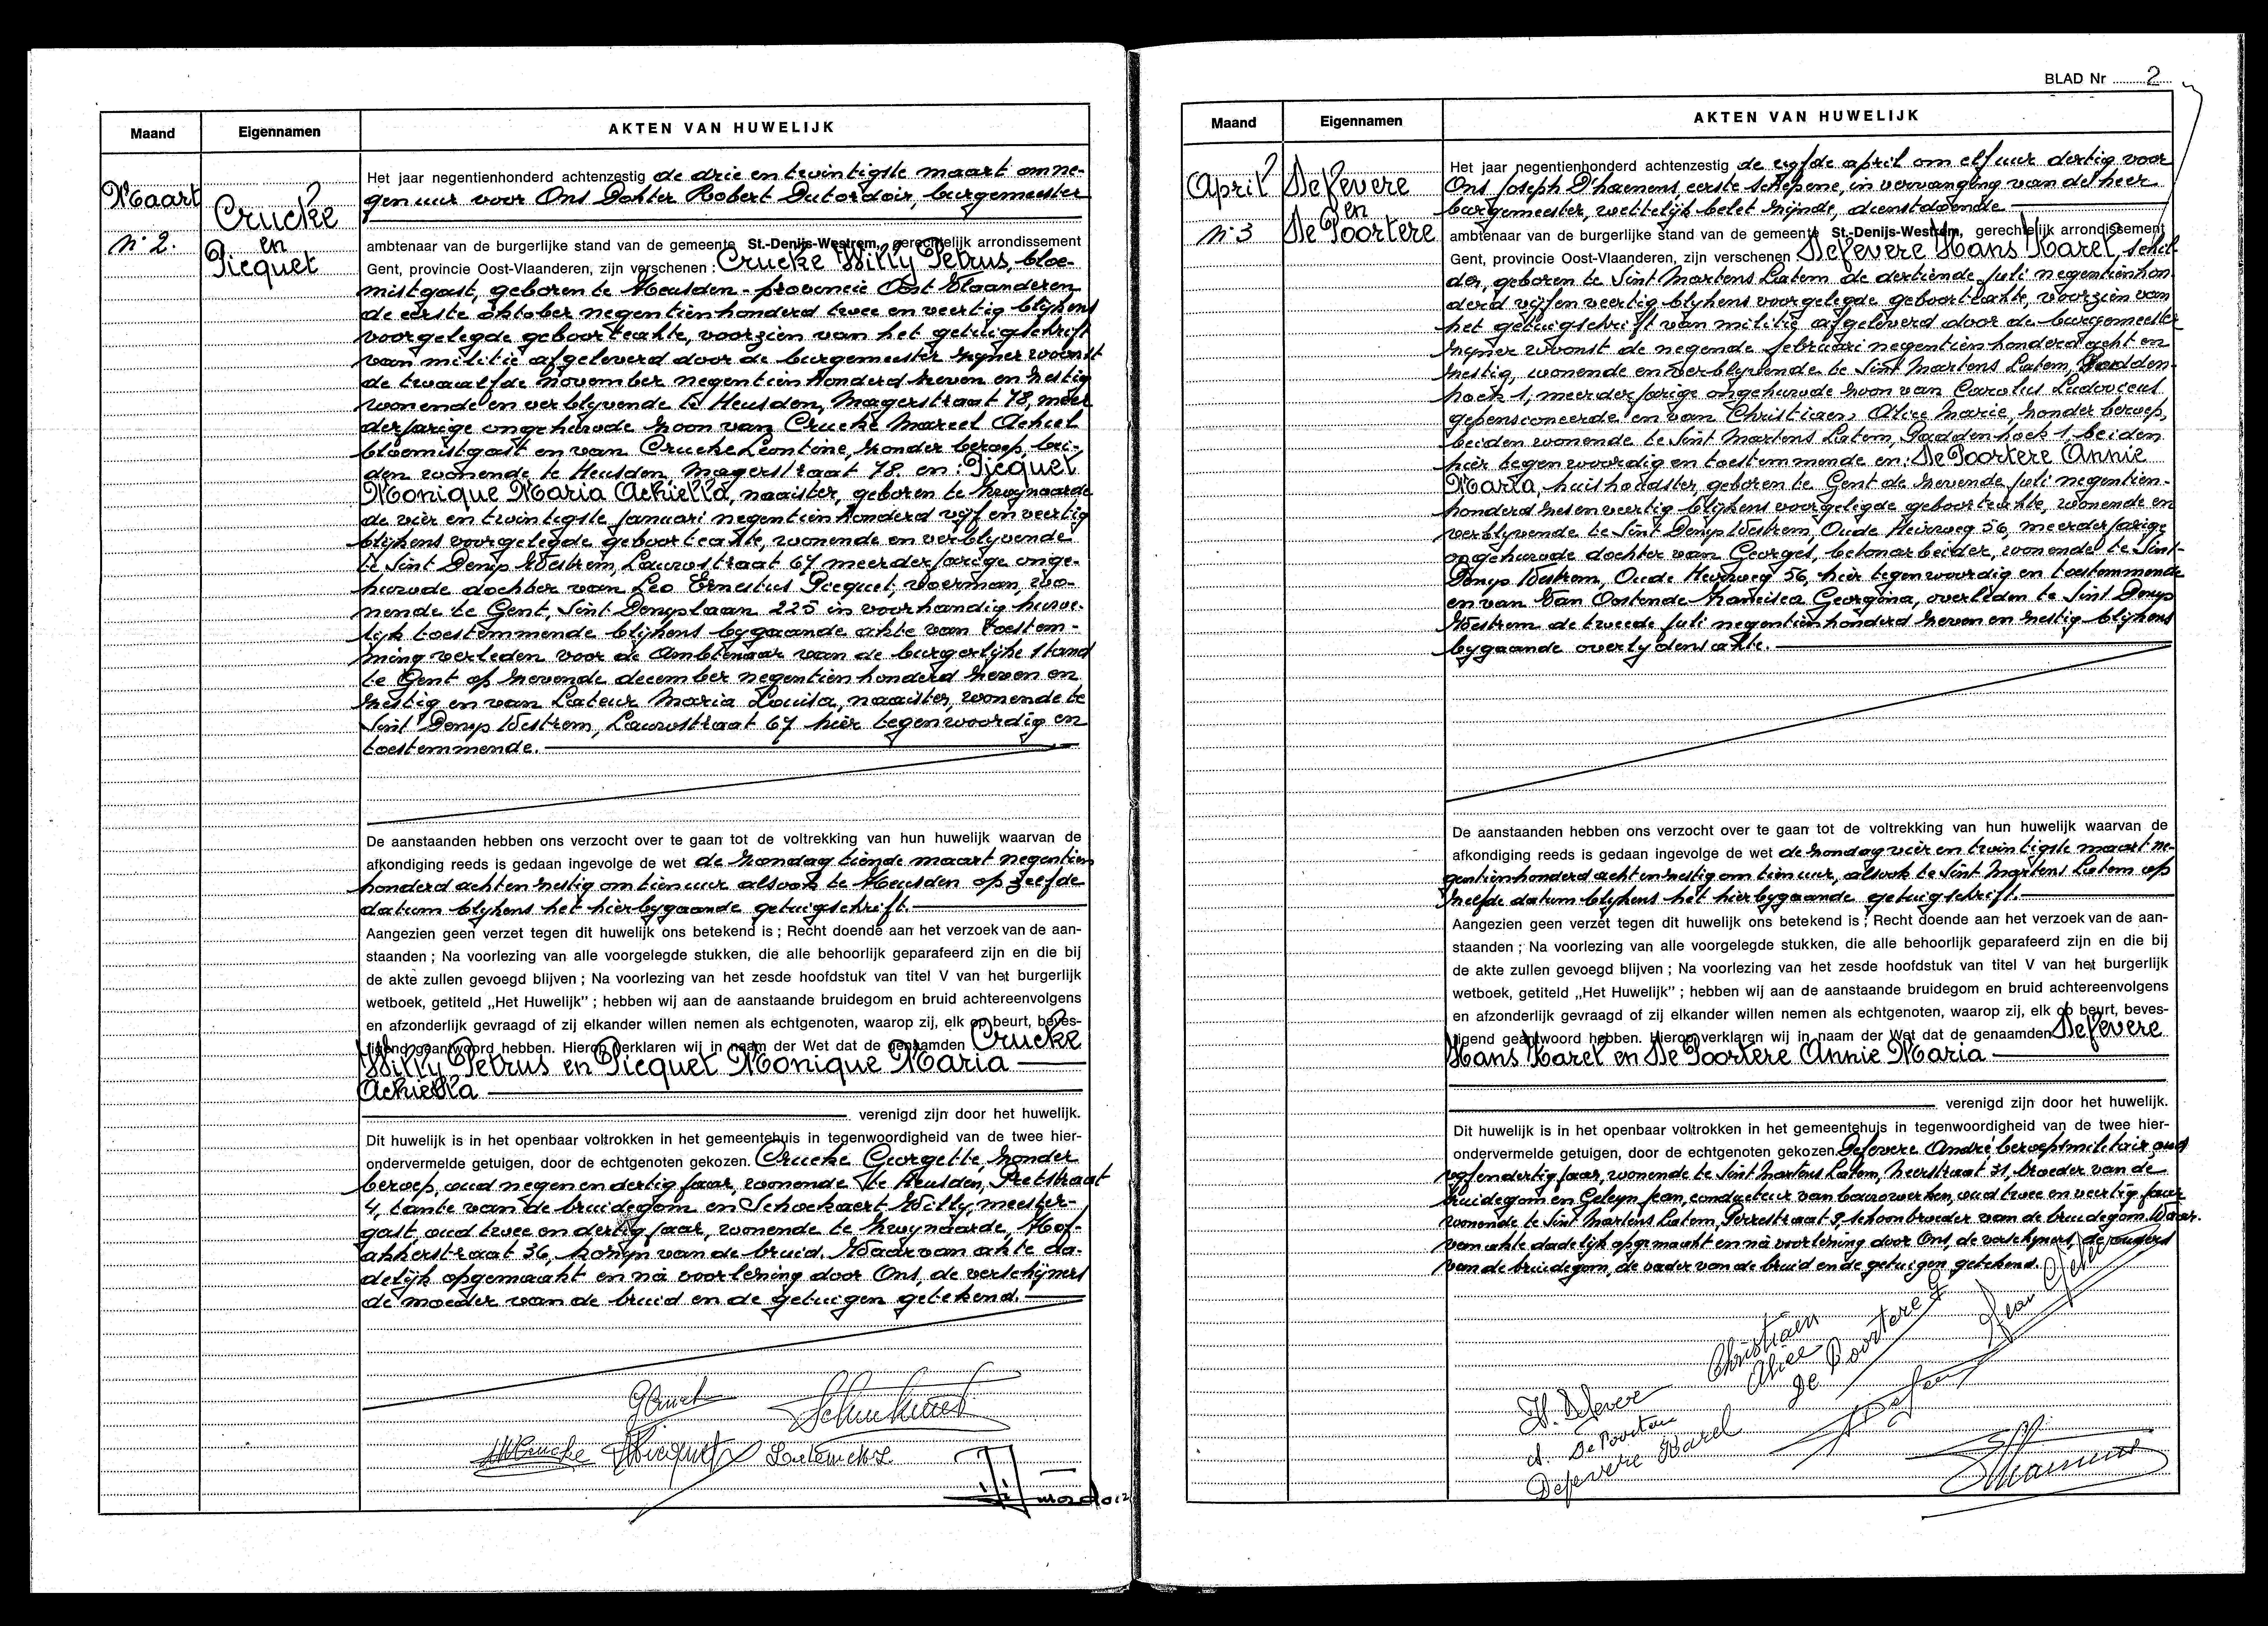 Maand
Eigennamen
AKTEN VAN HUWELIJK
Maart
n° 2.
Crucke
en
Picquet
Het jaar negentienhonderd achtenzestig de drie en twintigste maart om ne-
gen uur voor Ons Dokter Robert Dutordoir, burgemeester
ambtenaar van de burgerlijke stand van de gemeente St.-Denijs-Westrem, gerechtelijk arrondissement
Gent, provincie Oost-Vlaanderen, zijn verschenen : Crucke Willy Petrus, bloe-
mistgast, geboren te Heusden - provincie Oost Vlaanderen
de eerste oktober negentienhonderd twee en veertig blijkens
voorgelegde geboorteakte, voorzien van het getuigschrift
van militie afgeleverd door de burgemeester zijner woonst
de twaalfde november negentienhonderd zeven en zestig
wonende en verblijvende te Heusden, Magerstraat 78, meer
derjarige ongehuwde zoon van Crucke Marcel Achiel
bloemistgast en van Crucke Leontine, zonder beroep, bei-
den wonende te Heusden, Magerstraat 78. en : Picquet
Monique Maria Achiella, naaister, geboren te Zwijnaarde
de vier en twintigste januari negentienhonderd vijf en veertig
blijkens voorgelegde geboorteakte, wonende en verblijvende
te Sint Denijs Westrem, Lauwstraat 67 meerderjarige onge-
huwde dochter van Leo Ernestus Picquet, voerman, wo-
nende te Gent, Sint Denijslaan 225 in voorhandig huwe-
lijk toestemmende blijkens bijgaande akte van toestem-
ming verleden voor de Ambtenaar van de burgerlijke stand
te Gent op zevende december negentienhonderd zeven en
zestig en van Lateur Maria Louisa, naaister, wonende te
Sint Denijs Westrem, Lauwstraat 67 hier tegenwoordig en
toestemmende.
De aanstaanden hebben ons verzocht over te gaan tot de voltrekking van hun huwelijk waarvan de
afkondiging reeds is gedaan ingevolge de wet de zondag tiende maart negentien
honderd acht en zestig om tien uur alsook te Heusden op zelfde
datum blijkens het hierbijgaande getuigschrift.
Aangezien geen verzet tegen dit huwelijk ons betekend is ; Recht doende aan het verzoek van de aan-
staanden ; Na voorlezing van alle voorgelegde stukken, die alle behoorlijk geparafeerd zijn en die bij
de akte zullen gevoegd blijven ; Na voorlezing van het zesde hoofdstuk van titel V van het burgerlijk
wetboek, getiteld „Het Huwelijk" ; hebben wij aan de aanstaande bruidegom en bruid achtereenvolgens
en afzonderlijk gevraagd of zij elkander willen nemen als echtgenoten, waarop zij, elk op beurt, beves-
tigend geantwoord hebben. Hierop verklaren wij in naam der Wet dat de genaamden Crucke
Willy Petrus en Picquet Monique Maria
Achiella
verenigd zijn door het huwelijk.
Dit huwelijk is in het openbaar voltrokken in het gemeentehuis in tegenwoordigheid van de twee hier-
ondervermelde getuigen, door de echtgenoten gekozen. Crucke Georgette, zonder
beroep, oud negen en dertig jaar, wonende te Heusden, Pretstraat
4, tante van de bruidegom en Schockaert Willy, meester-
gast, oud twee en dertig jaar, wonende te Zwijnaarde, Hof-
akkerstraat 36, kozijn van de bruid. Waarvan akte da-
delijk opgemaakt en na voorlezing door Ons, de verschijners
de moeder van de bruid en de getuigen getekend.
BLAD Nr 2
Maand
Eigennamen
AKTEN VAN HUWELIJK
April
n° 3
Defevere
en
De Poortere
Het jaar negentienhonderd achtenzestig de vijfde april om elf uur dertig voor
Ons Joseph D'haenens eerste schepene, in vervanging van de heer
burgemeester, wettelijk belet zijnde, dienstdoende
ambtenaar van de burgerlijke stand van de gemeente St.-Denijs-Westrem, gerechtelijk arrondissement
Gent, provincie Oost-Vlaanderen, zijn verschenen Defevere Hans Karel, schil
der, geboren te Sint Martens Latem de dertiende juli negentienhon
derd vijf en veertig blijkens voorgelegde geboorteakte, voorzien van
het getuigschrift van militie afgeleverd door de burgemeester
zijner woonst de negende februari negentienhonderd acht en
zestig, wonende en verblijvende te Sint Martens Latem, Padden-
hoek 1, meerderjarige ongehuwde zoon van Carolus Ludovicus
gepensioneerde en van Christiaen, Alice Marie, zonder beroep,
beiden wonende te Sint Martens Latem, Paddenhoek 1, beiden
hier tegenwoordig en toestemmende en: De Poortere Annie
Maria, huishoudster, geboren te Gent de zevende juli negentien-
honderd zes en veertig blijkens voorgelegde geboorteakte, wonende en
verblijvende te Sint Denijs Westrem, Oude Heirweg 56, meerderjarige
ongehuwde dochter van Georges, betonarbeider, wonende te Sint-
Denijs Westrem, Oude Heirweg 56, hier tegenwoordig en toestemmende
en van Van Oostende Francisca Georgina, overleden te Sint Denijs
Westrem de tweede juli negentienhonderd zeven en zestig blijkens
bijgaande overlijdensakte.
De aanstaanden hebben ons verzocht over te gaan tot de voltrekking van hun huwelijk waarvan de
afkondiging reeds is gedaan ingevolge de wet de zondag vier en twintigste maart ne-
gentienhonderd acht en zestig om tien uur, alsook te Sint Martens Latem op
zelfde datum blijkens het hierbijgaande getuigschrift.
Aangezien geen verzet tegen dit huwelijk ons betekend is ; Recht doende aan het verzoek van de aan-
staanden ; Na voorlezing van alle voorgelegde stukken, die alle behoorlijk geparafeerd zijn en die bij
de akte zullen gevoegd blijven ; Na voorlezing van het zesde hoofdstuk van titel V van het burgerlijk
wetboek, getiteld „Het Huwelijk" ; hebben wij aan de aanstaande bruidegom en bruid achtereenvolgens
en afzonderlijk gevraagd of zij elkander willen nemen als echtgenoten, waarop zij, elk op beurt, beves-
tigend geantwoord hebben. Hierop verklaren wij in naam der Wet dat de genaamden Defevere
Hans Karel en De Poortere Annie Maria
verenigd zijn door het huwelijk.
Dit huwelijk is in het openbaar voltrokken in het gemeentehuis in tegenwoordigheid van de twee hier-
ondervermelde getuigen, door de echtgenoten gekozen. Defevere André beroepsmilitair oud
vijf en dertig jaar, wonende te Sint Martens Latem, Meerstraat 31, broeder van de
bruidegom en Geleyn Jean, conducteur van bouwwerken, oud twee en veertig jaar
wonende te Sint Martens Latem, 9, schoonbroeder van de bruidegom. Waar-
van akte dadelijk opgemaakt en na voorlezing door Ons, de verschijners, de ouders
van de bruidegom, de vader van de bruid en de getuigen getekend.
Christiaen
Alice
De Poortere G
H. Defever
A. De Poortere
Defevere Karel